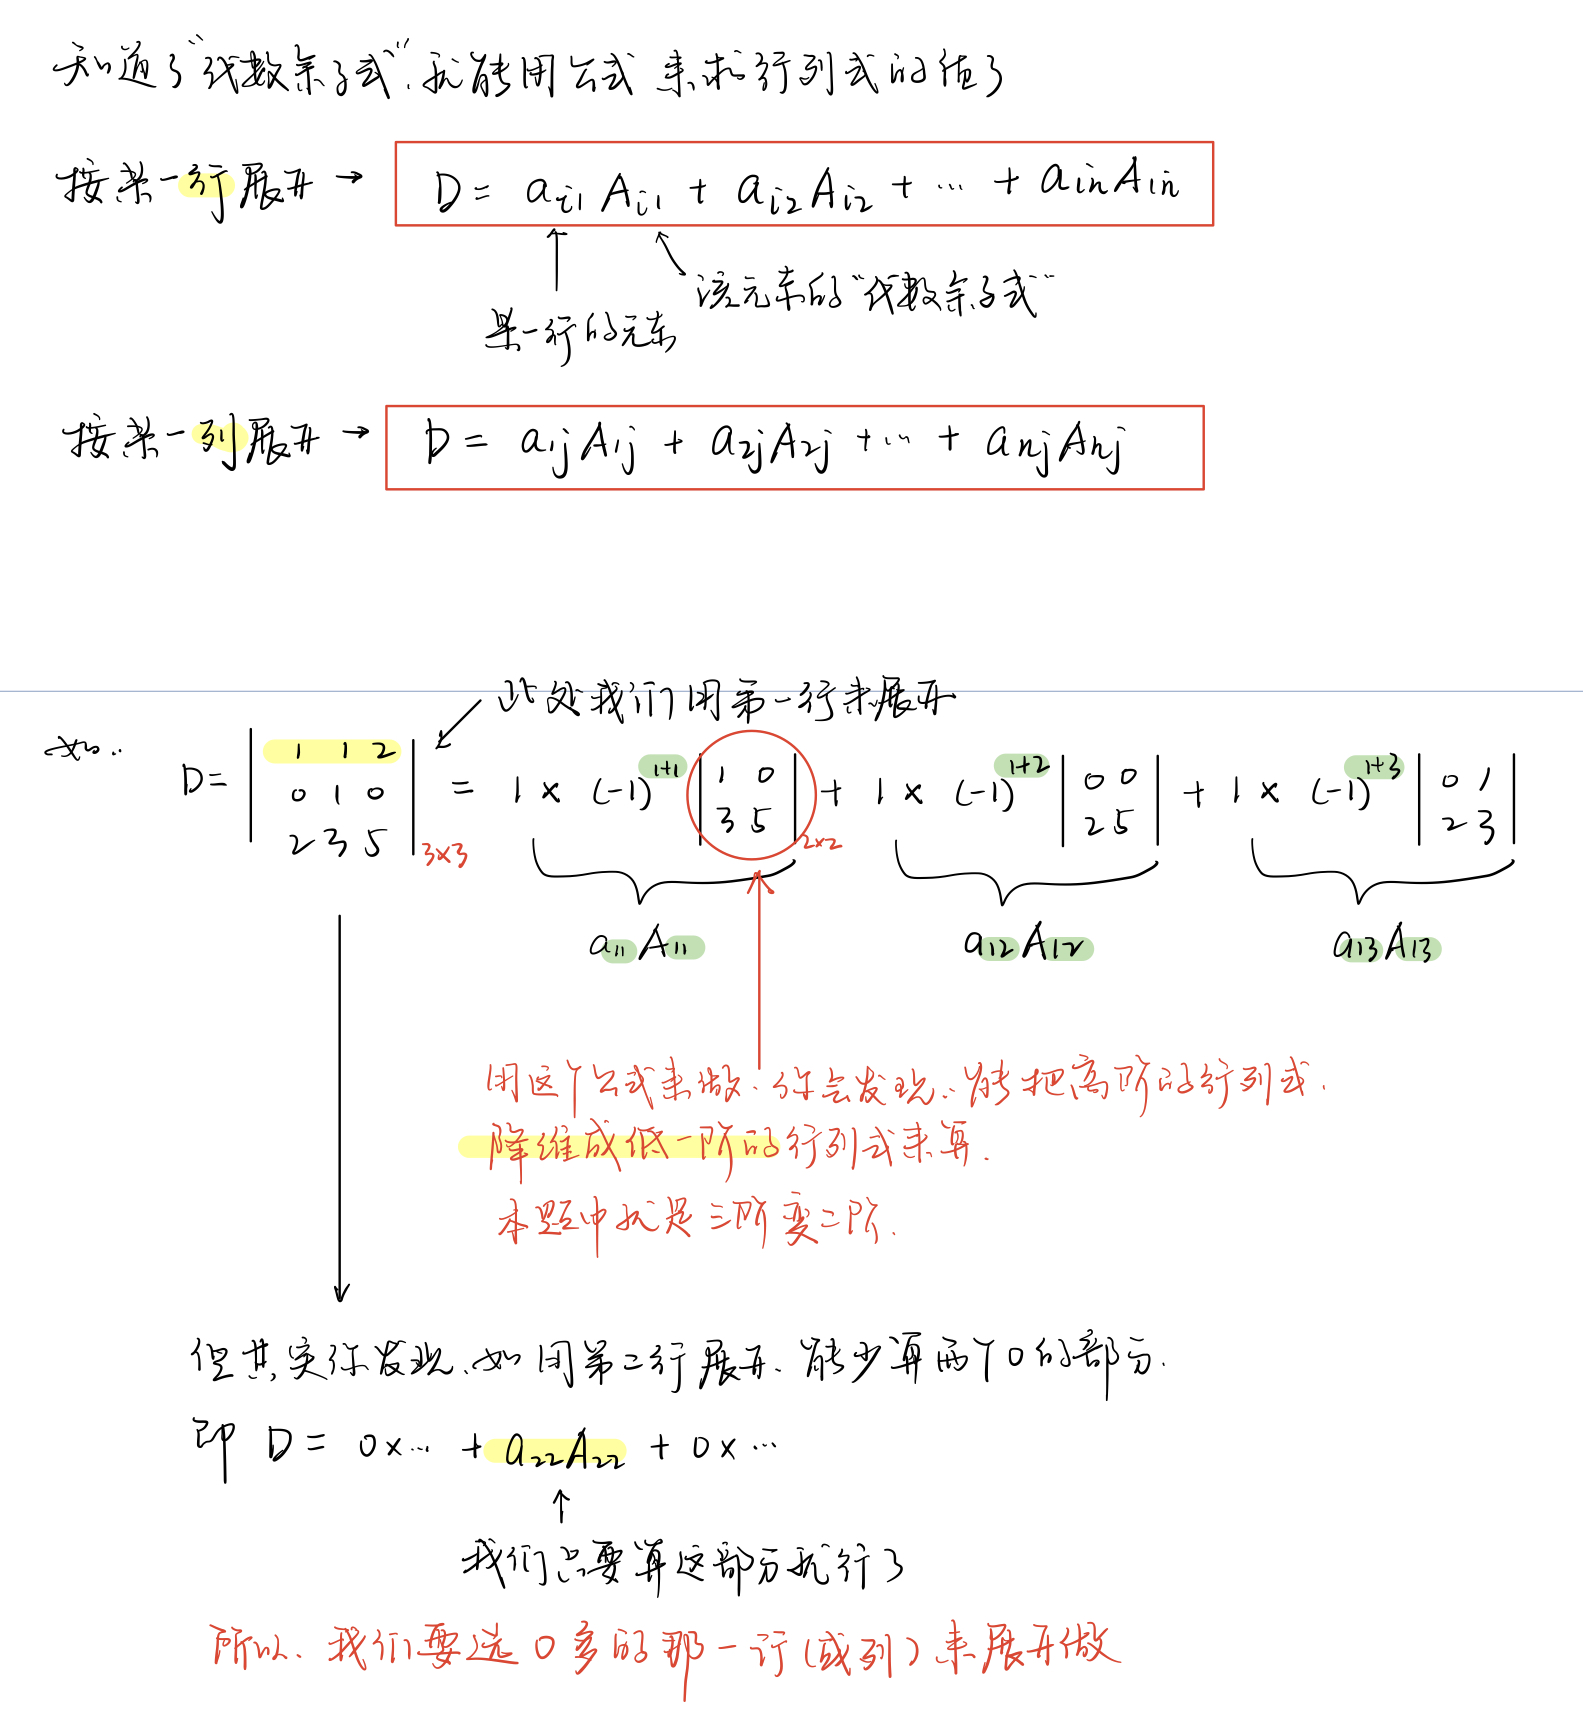 知道了“代数余子式”,就能用公式 来求行列式的值了
按某一行展开 → D = ai1 Ai1 + ai2 Ai2 + ... + ain Ain
某一行的元素
该元素的“代数余子式”
按某一列展开 → D = a1j A1j + a2j A2j + ... + anj Anj
此处我们用第一行来展开
如..
D = | 1 1 2 |
| 0 1 0 |
| 2 3 5 | 3×3
= 1 × (-1)^1+1 | 1 0 |
| 3 5 | 2×2
+ 1 × (-1)^1+2 | 0 0 |
| 2 5 |
+ 1 × (-1)^1+3 | 0 1 |
| 2 3 |
a11 A11
a12 A12
a13 A13
用这个公式来做.你会发现..能把高阶的行列式.
降维成低一阶的行列式来算.
本题中就是三阶变二阶.
但其实你发现.如用第二行展开.能少算两个0的部分.
即 D = 0×... + a22 A22 + 0×...
我们只要算这部分就行了
所以.我们要选0多的那一行(或列)来展开做